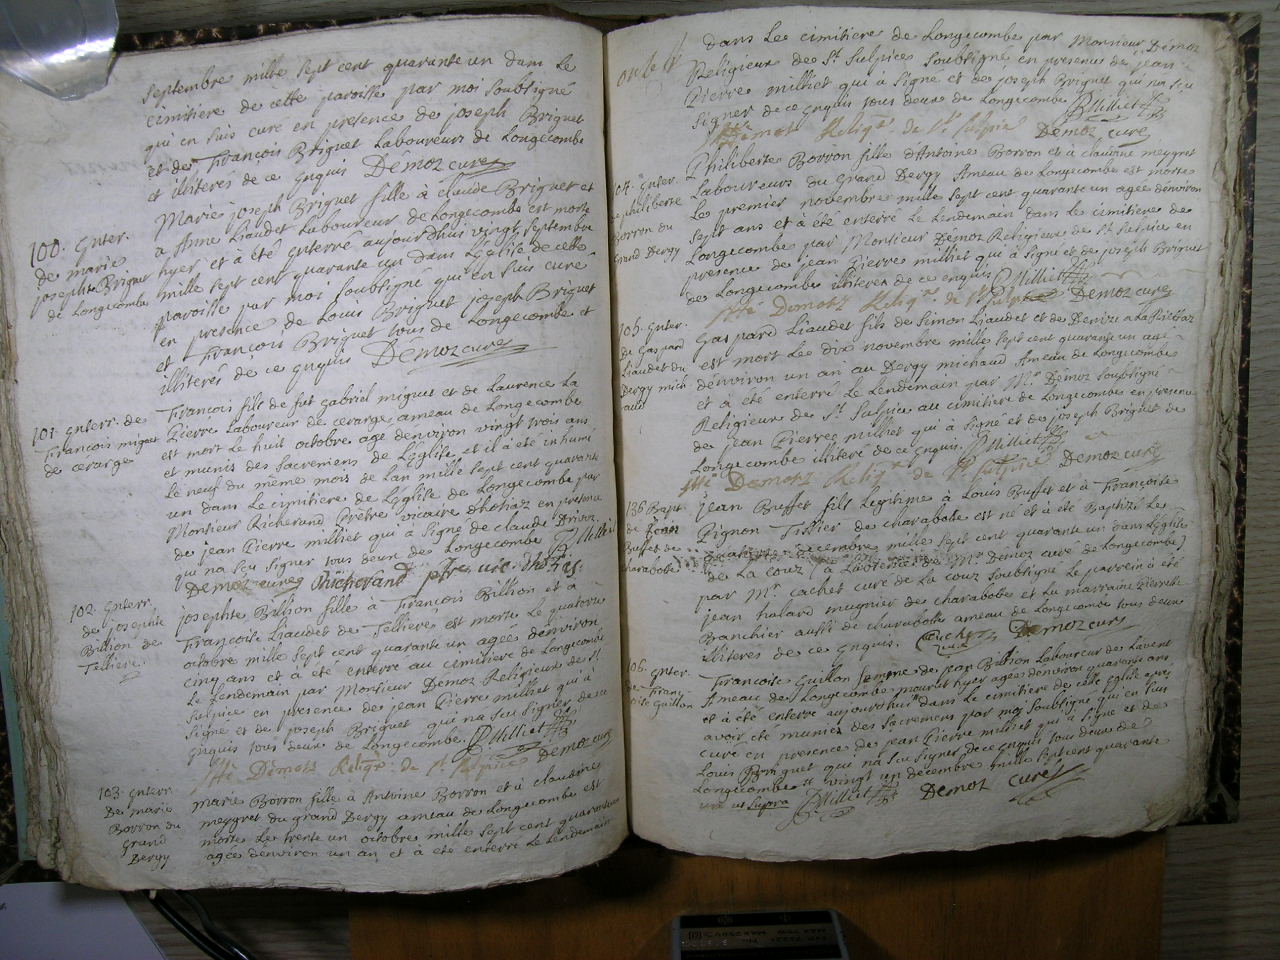 septembre mille sept cent quarante un dans le
cimitiere de cette paroisse par moi soubsigné
qui en suis curé en presence de joseph Briguet
et de François Briguet Laboureurs de Longecombe
et illiterés de ce enquis Démoz curé
100. Enter.
de marie
josephe Briguet
de Longecombe
Marie joseph Briguet fille à claude Briguet et
a Anne Liaudet Laboureur de Longecombe est morte
hyer et à été enterré aujourd'hui vingt septembre
mille sept cent quarante un dans L'église de cette
paroisse par moi soubsigné qui en suis curé
en presence de Louis Briguet joseph Briguet
et François Briguet tous de Longecombe et
illiterés de ce enquis Démoz curé
101. Enterr. de
François miguet
de cerarge
François fils de fut gabriel miguet et de Laurence La
Pierre Laboureur de cerarge ameau de Longecombe
est mort le huit octobre agé denviron vingt trois ans
et munis des sacremens de L'église et il à été inhumé
Le neuf du même mois de Lan mille sept cent quarante
un dans Le cimitiere de L'église de Longecombe par
Monsieur Richerand Prêtre vicaire d'hotiaz en presence
de jean Pierre milliet qui à signé de claude
qui na sceu signer tous deux de Longecombe P. Milliet
Demoz curé Richerand ptre vic. d'hotias.
102. Enterr.
de josephte
Billion de
Telliere.
josephte Billion fille à François Billion et à
Françoise Liaudet de Telliere est morte Le quatorze
octobre mille sept cent quarante un agée denviron
cinq ans et à été enterre au cimitiere de Longecombe
Le Lendemain par Monsieur Démoz Religieux de St.
Sulpice en presence de jean Pierre milliet qui à
signé et de joseph Briguet qui na sceu signer de ce
enquis tous deux de Longecombe. P. Milliet
Démotz Religx. de St. Sulpice Démoz curé
103. Enterr.
De marie
Borron du
grand
Dergy
marie Borron fille à Antoine Borron et à claudine
meygret du grand Dergy ameau de Longecombe est
morte Le trente un octobre mille sept cent quarante un
agée denviron un an et à été enterré Le Lendemain
dans Le cimitiere de Longecombe par Monsieur Démoz
Religieux de St. Sulpice soubsigné en presence de jean
Pierre milliet qui à signé et de joseph Briguet qui na sceu
signer de ce enquis tous deux de Longecombe P. Milliet
Démotz Religx. de St. Sulpice Démoz curé
104. Enter.
de philiberte
Borron du
grand Dergy
Philiberte Borron fille d'Antoine Borron et à claudine meygret
Laboureurs du grand Dergy Ameau de Longecombe est morte
Le premier novembre mille sept cent quarante un agée denviron
sept ans et à été enterré Le Lendemain dans Le cimitiere de
Longecombe par Monsieur Démoz Religieux de St. Sulpice en
presence de jean Pierre milliet qui à signé et de joseph Briguet
de Longecombe illiteré de ce enquis P. Milliet
Démotz Religx. de St. Sulpice Démoz curé
105. Enter.
De Gaspard
Liaudet du
Dergy mich
aud
Gaspard Liaudet fils de Simon Liaudet et de Denize
est mort Le dix novembre mille sept cent quarante un agé
denviron un an au Dergy michaud Ameau de Longecombe
et à été enterré Le Lendemain par Mr. Démoz soubsigné
Religieux de St. Sulpice au cimitiere de Longecombe en presence
de jean Pierre milliet qui à signé et de joseph Briguet de
Longecombe illiteré de ce enquis. P. Milliet
Démotz Religx. de St. Sulpice Démoz curé
136 Bapt.
de jean
Buffet de
charabote
jean Buffet fils Legitime à Louis Buffet et à Françoise
Pignon Tissier de charabote est né et à été Baptizé Le
decembre mille sept cent quarante un dans L'église
de La couz (à Mr. Démoz curé de Longecombe)
par Mr. cachet curé de La couz soubsigné Le parrein à été
jean halard mugnier de charabote et La marraine Pierrette
Branchier aussi de charabote ameau de Longecombe tous deux
illiterés de ce enquis. Cachet curé Démoz curé
106. Enter.
de Fran
oise Guillon
Françoise Guillon femme de jean Billion Laboureur des Lavent
Ameau de Longecombe mourut hyer agée denviron quarante ans
et à été enterré aujourd'hui dans Le cimitiere de cette église apres
avoir été munie des sacremens par moi soubsigné qui en suis
curé en presence de jean Pierre milliet qui à signé et de
Louis Briguet qui na sceu signer de ce enquis tous deux de
Longecombe et vingt un décembre mille sept cent quarante
un ut supra P. Milliet Démoz curé